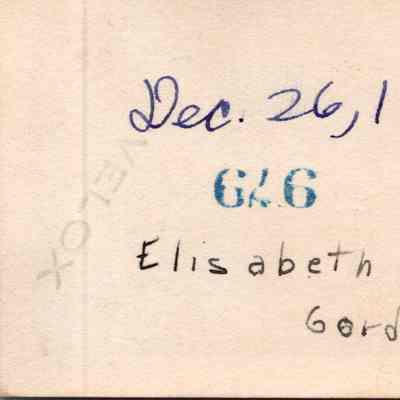 Dec. 26, 1
VELOX
Elisabeth
Gord